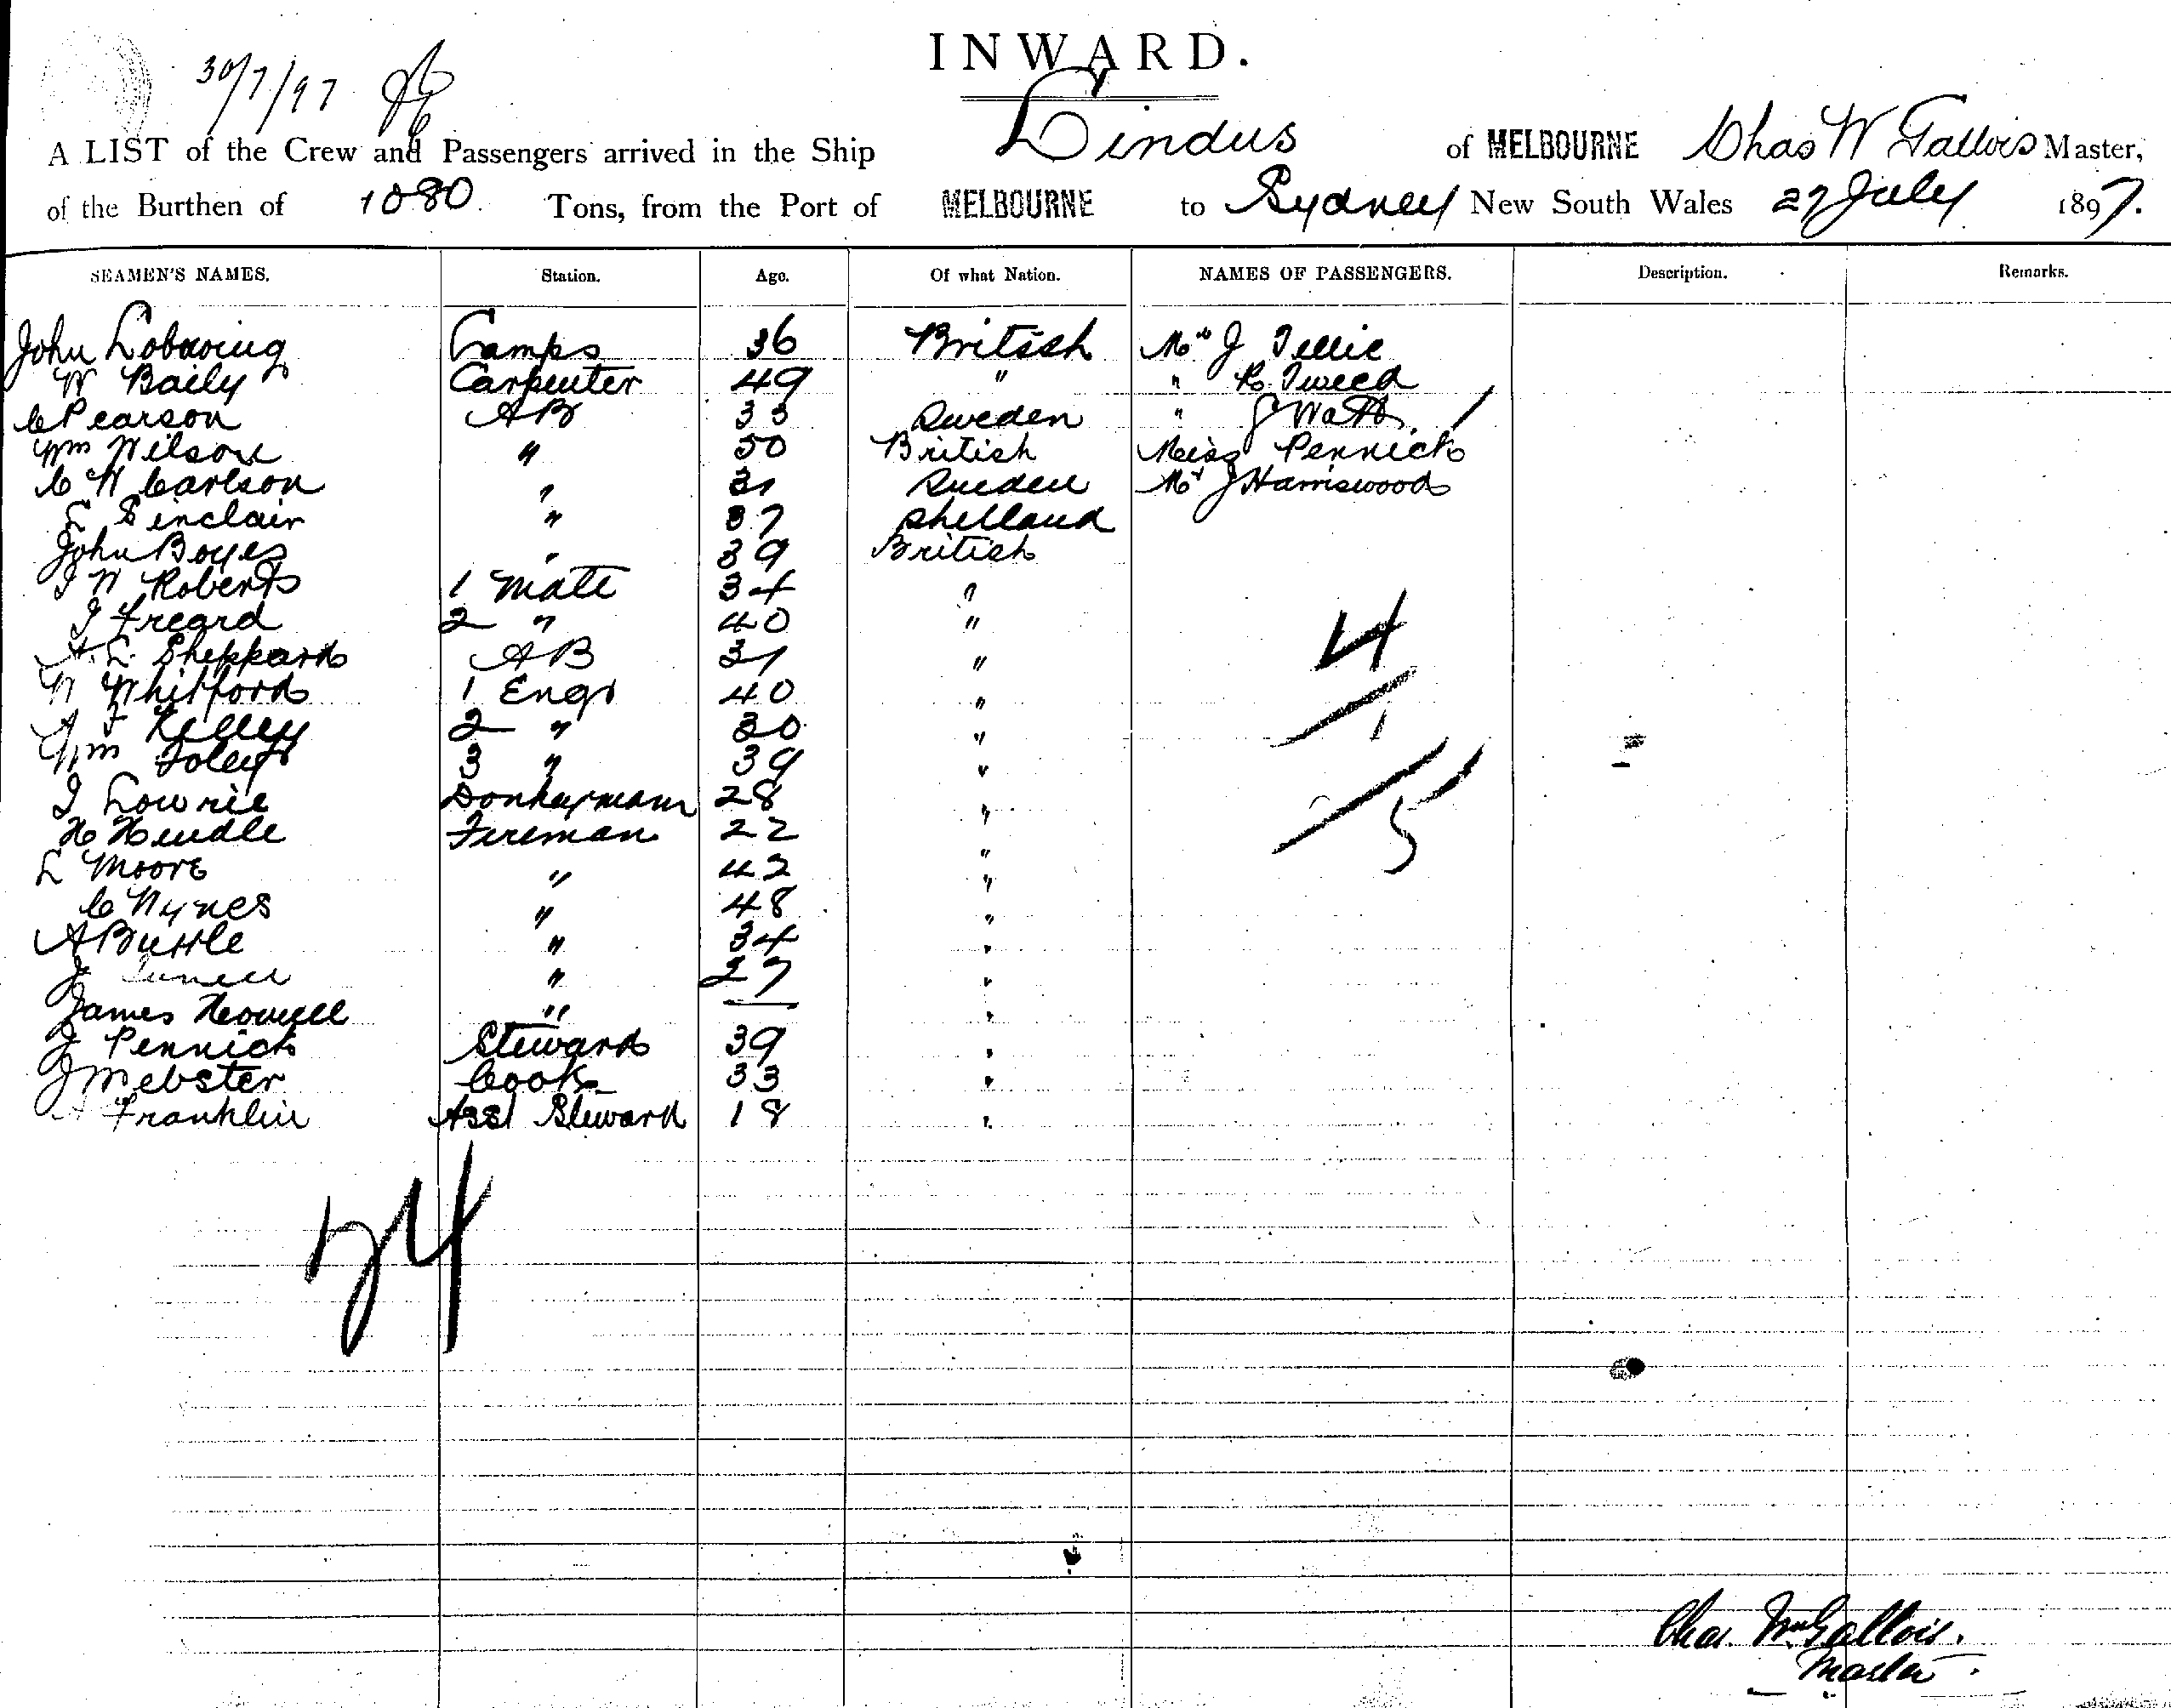 INWARD.
30/7/97
A LIST of the Crew and Passengers arrived in the Ship Lindus of MELBOURNE Chas W Gallois Master,
of the Burthen of 1080 Tons, from the Port of MELBOURNE to Sydney New South Wales 29 July 1897.
SEAMEN'S NAMES. Station. Age. Of what Nation. NAMES OF PASSENGERS. Description. Remarks.
John Lamps 36 British Mrs J Tellie
W Baily Carpenter 49 " " R Tweed
C Pearson AB 33 Sweden " J Watt
Wm Wilson " 50 British Miss Pennick
C W Carlson " 31 Sweden Mr J Harriswood
L Sinclair " 37 Shetland
John Boyes " 39 British
J W Roberts 1 Mate 34 "
J Freard 2 " 40 "
A. L. Sheppard AB 31 "
W Whitford 1 Engr 40 "
A F Kelley 2 " 30 "
Wm Foley 3 " 39 "
J Lowrie Donkeyman 28 "
H Hendle Fireman 22 "
L Moore " 42 "
C Wynes " 48 "
A Buttle " 34 "
J " 27 "
James " — "
J Pennick Steward 39 "
J Webster Cook 33 "
A Franklin Asst Steward 18 "
4
1
5
24
Chas. Wm Gallois.
Master